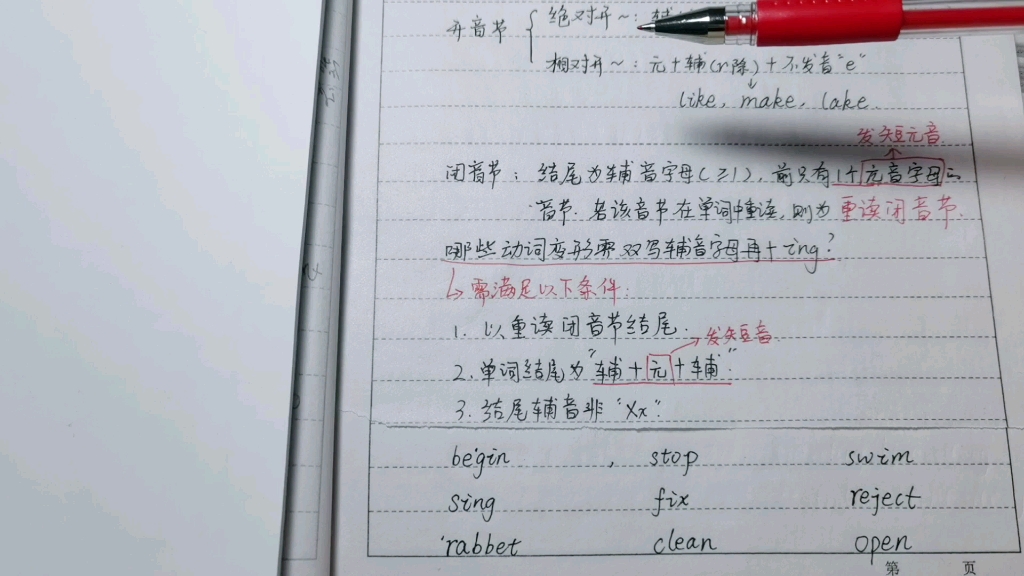 开音节 { 绝对开~: 辅
相对开~: 元+辅(r除)+不发音"e"
like, make, lake.
发短元音
闭音节: 结尾为辅音字母(≥1), 前只有1个元音字母的
音节. 若该音节在单词中重读, 则为重读闭音节.
哪些动词变形需双写辅音字母再+ing?
需满足以下条件:
1. 以重读闭音节结尾.
发短音
2. 单词结尾为"辅+元+辅".
3. 结尾辅音非"Xx".
begin , stop swim
sing fix reject
rabbet clean open
第 页